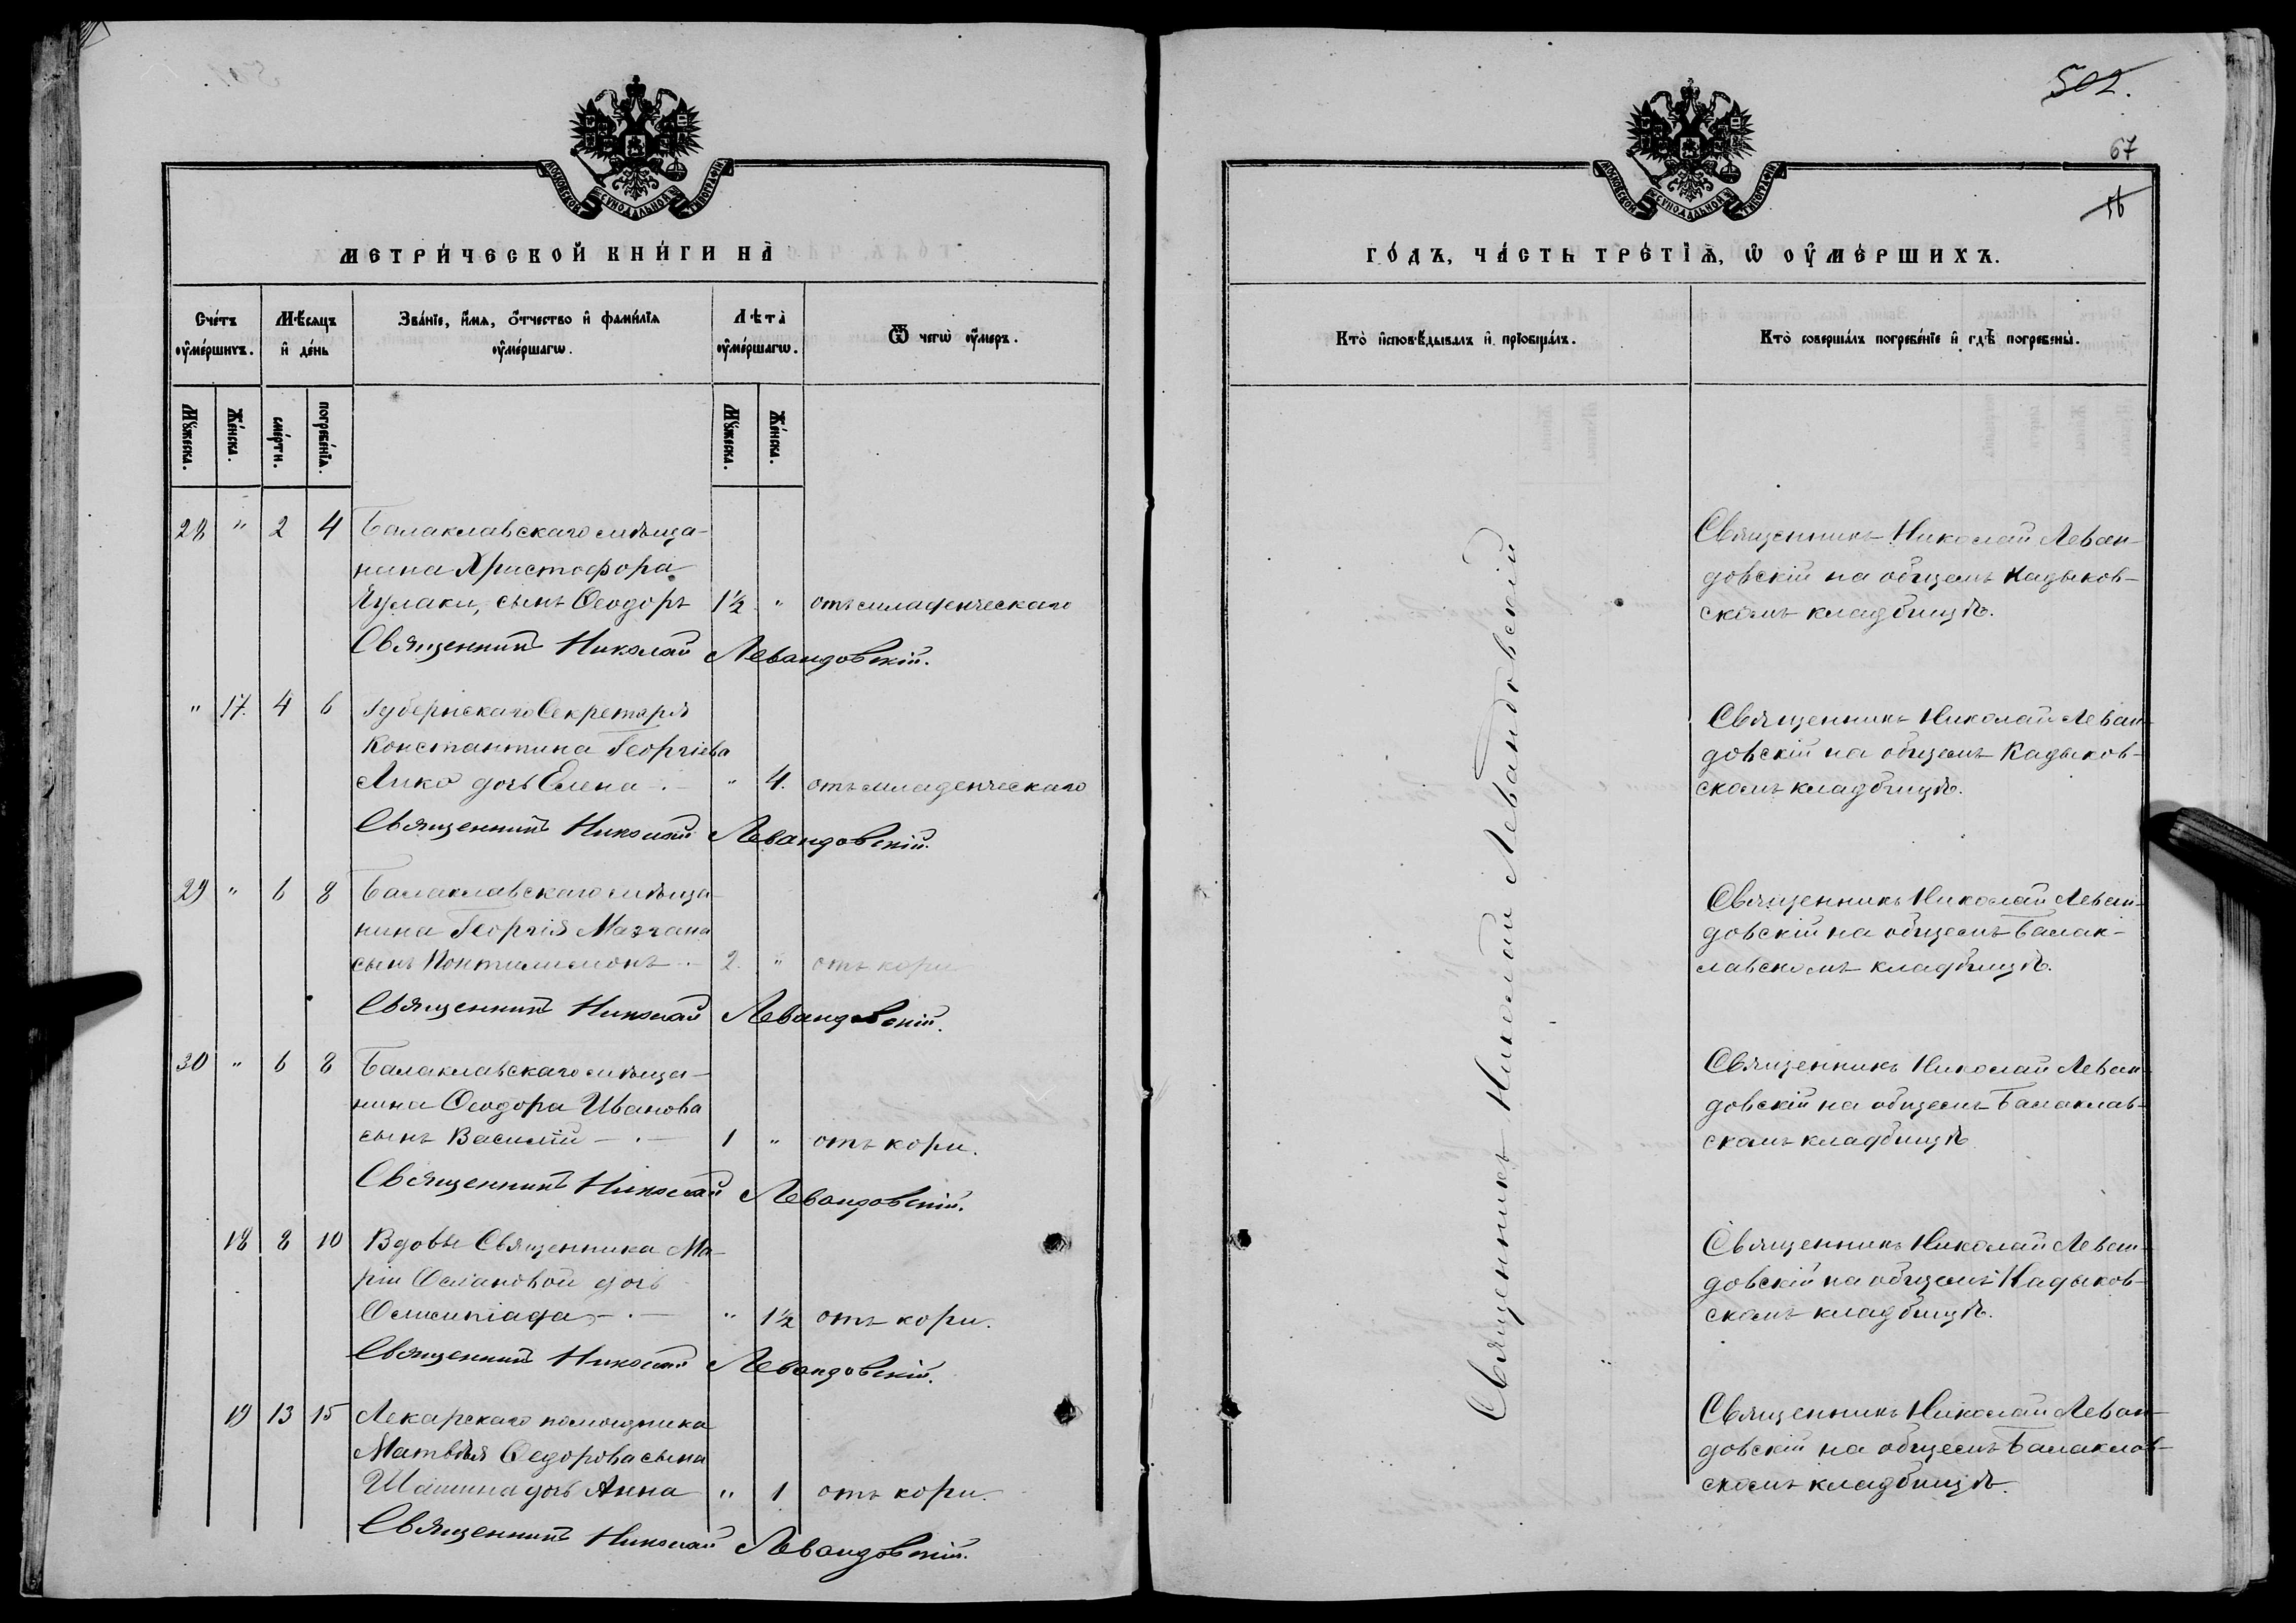 502.
67
56
МОСКОВСКОЙ СѴНОДАЛЬНОЙ ТИПОГРАФІИ
МЕТРИ́ЧЕСКОЙ КНИ́ГИ НА̀
Сче́тъ ᲂу҆ме́ршихъ.
Мѣ́сяцъ и҆ де́нь
Зва́нїе, и҆́мѧ, ѻ҆́тчество и҆ фами́лїѧ ᲂу҆ме́ршагѡ.
Лѣ̀та ᲂу҆ме́ршагѡ.
Ѿ чегѡ̀ ᲂу҆́меръ.
Мꙋ́жеска.
Же́нска.
сме́рти.
погребе́нїѧ.
Мꙋ́жеска.
Же́нска.
28 " 2 4 Балаклавскаго мѣща-
нина Христофора
Чулаки, сынъ Ѳеодоръ 1½ " отъ младенческаго
Священникъ Николай Левандовскій.
" 17. 4 6 Губернскаго Секретаря
Константина Георгіева
Лико дочь Елена " 4. отъ младенческаго
Священникъ Николай Левандовскій.
29 " 6 8 Балаклавскаго мѣща-
нина Георгія Мазгана
сынъ Понтилимонъ 2. " отъ кори
Священникъ Николай Левандовскій.
30 " 6 8 Балаклавскаго мѣща-
нина Ѳеодора Иванова
сынъ Василій 1 " отъ кори.
Священникъ Николай Левандовскій.
18 8 10 Вдовы Священника Ма-
ріи дочь
Олимпіада " 1½ отъ кори.
Священникъ Николай Левандовскій.
19 13 15 Лекарскаго помощника
Матвѣя Ѳедорова сына
Шашина дочь Анна " 1 отъ кори.
Священникъ Николай Левандовскій.
МОСКОВСКОЙ СѴНОДАЛЬНОЙ ТИПОГРАФІИ
ГО́ДЪ, ЧА́СТЬ ТРЕ́ТЇѦ, Ѡ҆ ОУ҆МЕ́РШИХЪ.
Кто̀ и҆сповѣ́дывалъ и҆ прїѡбща́лъ.
Кто̀ соверша́лъ погребе́нїе и҆ гдѣ̀ погребены̀.
Священникъ Николай Левандовскій
Священникъ Николай Леван-
довскій на общемъ Кадыков-
скомъ кладбищѣ.
Священникъ Николай Леван-
довскій на общемъ Кадыков-
скомъ кладбищѣ.
Священникъ Николай Леван-
довскій на общемъ Балак-
лавскомъ кладбищѣ.
Священникъ Николай Леван-
довскій на общемъ Балаклав-
скомъ кладбищѣ
Священникъ Николай Леван-
довскій на общемъ Кадыков-
скомъ кладбищѣ.
Священникъ Николай Леван-
довскій на общемъ Балаклав-
скомъ кладбищѣ.